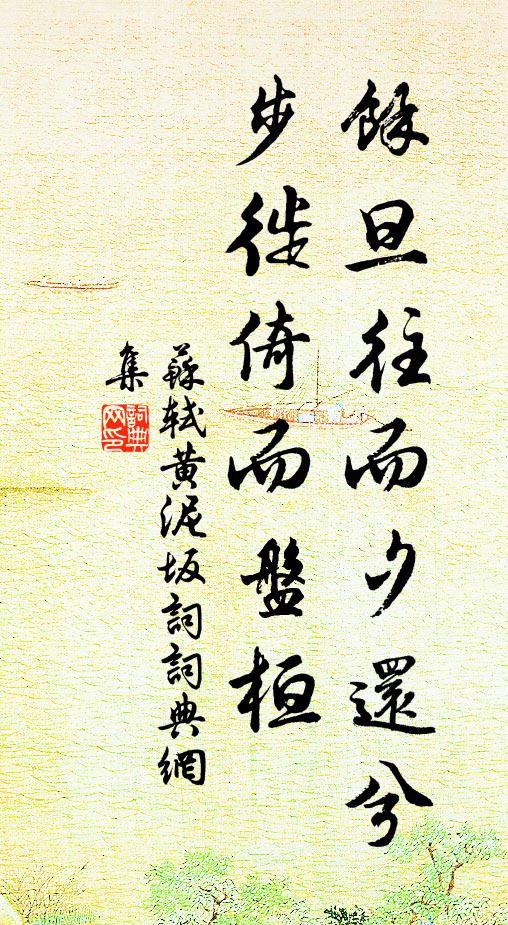 餘旦往而夕還兮
步徙倚而盤桓
蘇軾黃泥坂詞詞典網
集
詞典网印